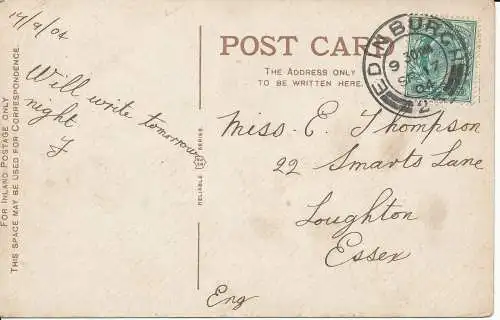 14/9/04
Will write tomorrow
night
FOR INLAND POSTAGE ONLY
THIS SPACE MAY BE USED FOR CORRESPONDENCE.
RELIABLE SERIES.
POST CARD
THE ADDRESS ONLY
TO BE WRITTEN HERE.
EDINBURGH
04
2
Miss. E. Thompson
22 Smarts Lane
Loughton
Essex
Eng